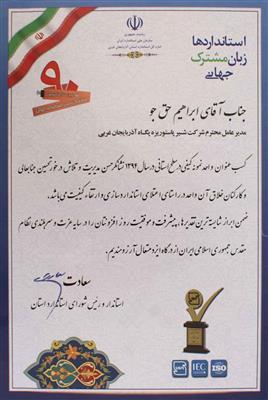 استانداردها
زبان مشترک
جهانی
ریاست جمهوری
سازمان ملی استاندارد ایران
اداره کل استاندارد استان آذربایجان غربی
۹۰
جناب آقای ابراهیم حق جو
مدیر عامل محترم شرکت شیر پاستوریزه پگاه آذربایجان غربی
کسب عنوان واحد نمونه کیفی در سطح استانی در سال ۱۳۹۴ نشانگر حسن مدیریت و تلاش در خور تحسین جنابعالی
و کارکنان خلاق آن واحد در راستای اعتلای استانداردسازی و ارتقاء کیفیت می باشد.
ضمن ابراز شایسته ترین تقدیرها، پیشرفت و موفقیت روز افزونتان را در سایه عزت و سربلندی نظام
مقدس جمهوری اسلامی ایران از درگاه ایزد متعال آرزومندیم.
سعادت
استاندار و رئیس شورای استاندارد استان
IEC
ISO